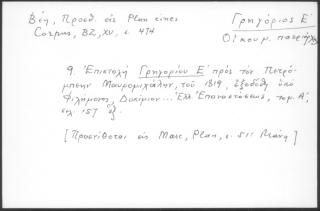 Βέη, Προσθ. εἰς Plan eines
Corpus, BZ, XV, σ. 474
Γρηγόριος Ε΄
Οἰκουμ. πατριάρχης
9. Ἐπιστολή Γρηγορίου Ε΄ πρός τόν Πετρό-
μπεην Μαυρομιχάλην, τοῦ 1819, ἐξεδόθη ὑπό
Φιλήμονος, Δοκίμιον... Ἑλλ. Ἐπαναστάσεως, τομ. Α΄,
σελ. 157 ἑξ.
[Προστίθεται εἰς Marc, Plan, σ. 511